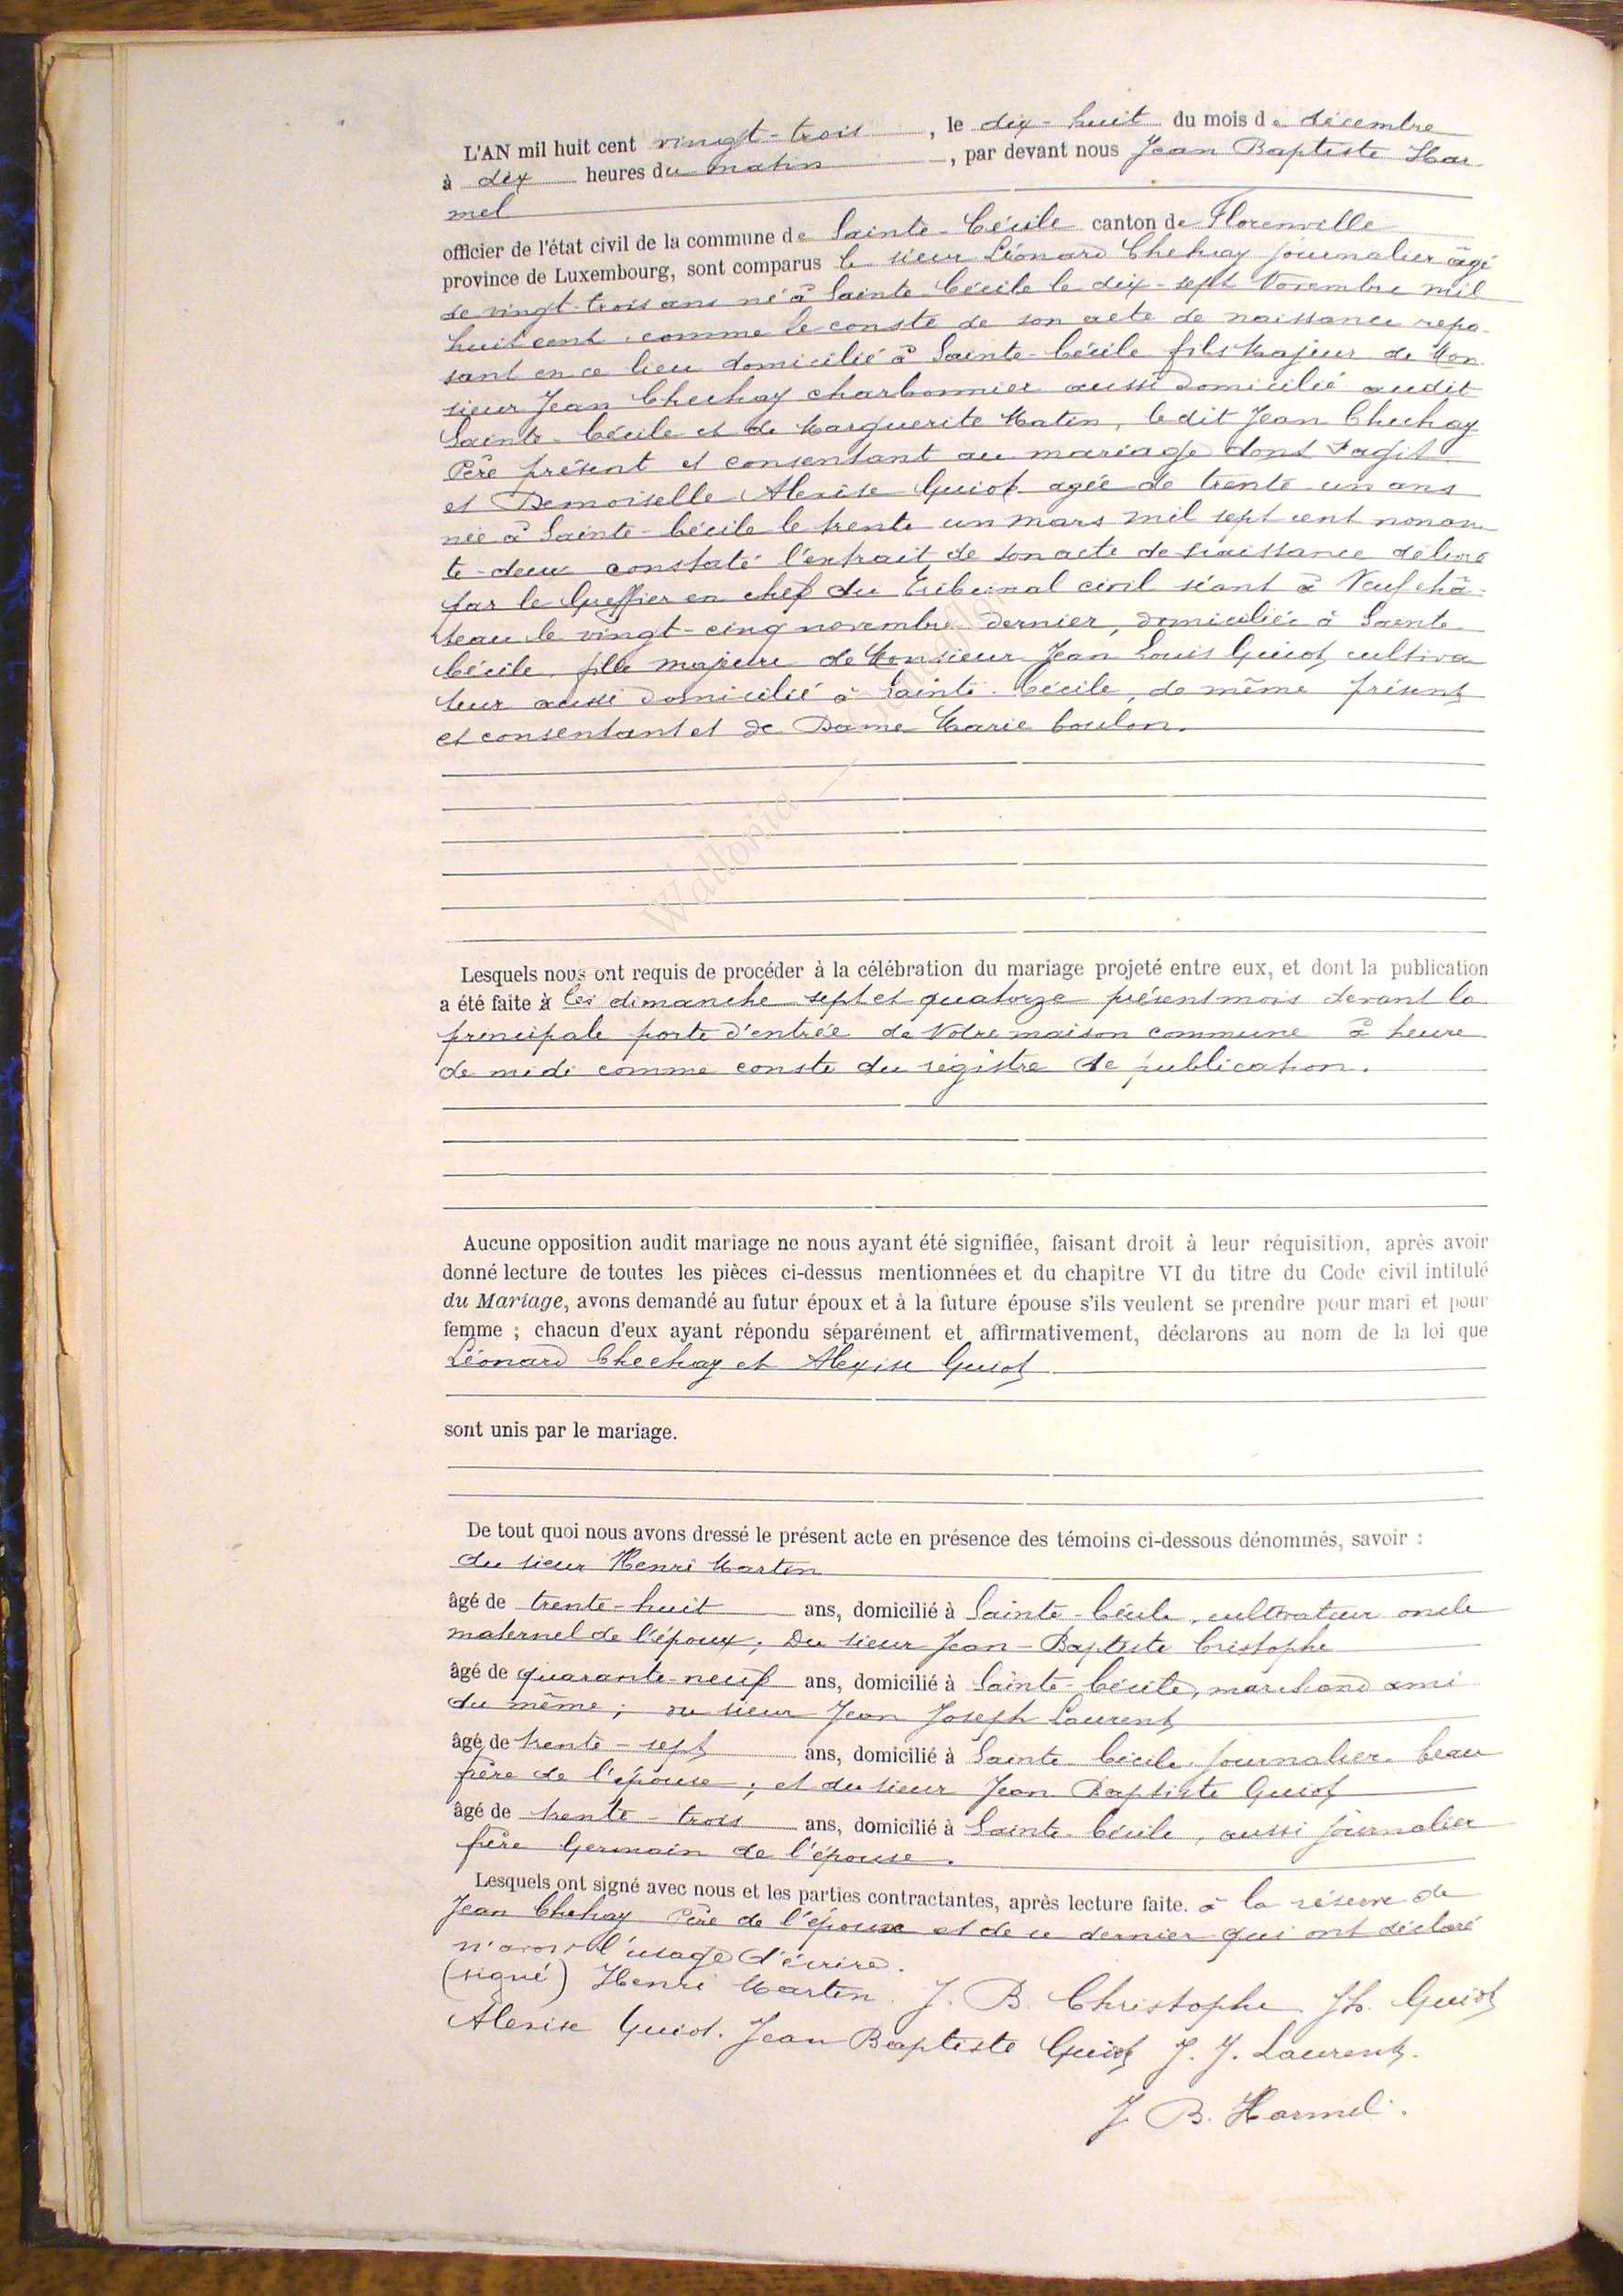 L'AN mil huit cent vingt-trois, le dix-huit du mois de décembre
à dix heures du matin, par devant nous Jean Baptiste Har
mel
officier de l'état civil de la commune de Sainte-Cécile canton de Florenville
province de Luxembourg, sont comparus le sieur Léonard Chehay journalier âgé
de vingt-trois ans né à Sainte-Cécile le dix-sept Novembre mil
huit cent comme le conste de son acte de naissance repo-
sant en ce lieu domicilié à Sainte-Cécile fils Majeur de Mon
sieur Jean Chechay charbonnier aussi domicilié audit
Sainte-Cécile et de Marguerite Matin, le dit Jean Chechay
Père présent et consentant au mariage dont s'agit
et Demoiselle Alexise Guiot agée de trente un ans
née à Sainte-Cécile le trente un mars mil sept cent nonan
te-deux constaté l'extrait de son acte de naissance délivré
par le Greffier en chef du Tribunal civil séant à Neufchâ-
teau le vingt-cinq novembre dernier, domiciliée à Sainte
Cécile, fille majeure de Monsieur Jean Louis Guiot, cultiva
teur aussi domicilié à Sainte-Cécile, de même présent
et consentant et de Dame Marie Coulon.
Wallonia
Lesquels nous ont requis de procéder à la célébration du mariage projeté entre eux, et dont la publication
a été faite à les dimanche sept et quatorze présent mois devant la
principale porte d'entrée de Notre maison commune à heure
de midi comme conste du régistre de publication.
Aucune opposition audit mariage ne nous ayant été signifiée, faisant droit à leur réquisition, après avoir
donné lecture de toutes les pièces ci-dessus mentionnées et du chapitre VI du titre du Code civil intitulé
du Mariage, avons demandé au futur époux et à la future épouse s'ils veulent se prendre pour mari et pour
femme ; chacun d'eux ayant répondu séparément et affirmativement, déclarons au nom de la loi que
Léonard Chechay et Alexise Guiot
sont unis par le mariage.
De tout quoi nous avons dressé le présent acte en présence des témoins ci-dessous dénommés, savoir :
du sieur Henri Martin
âgé de trente-huit ans, domicilié à Sainte-Cécile, cultivateur oncle
maternel de l'époux; Du sieur Jean-Baptiste Cristophe
âgé de quarante-neuf ans, domicilié à Sainte-Cécile, marchand ami
du même; du sieur Jean Joseph Laurent
âgé de trente-sept ans, domicilié à Sainte Cécile, journalier, beau
frère de l'épouse; et du sieur Jean Baptiste Guiot
âgé de trente-trois ans, domicilié à Sainte-Cécile, aussi journalier
frère Germain de l'épouse.
Lesquels ont signé avec nous et les parties contractantes, après lecture faite. à la réserve de
Jean Chehay Père de l'époux et de ce dernier qui ont déclaré
n'avoir l'usage d'écrire.
(signé) Henri Martin. J. B. Christophe Jh. Guiot
Alexise Guiot. Jean Baptiste Guiot J. J. Laurent.
J. B. Harmel.